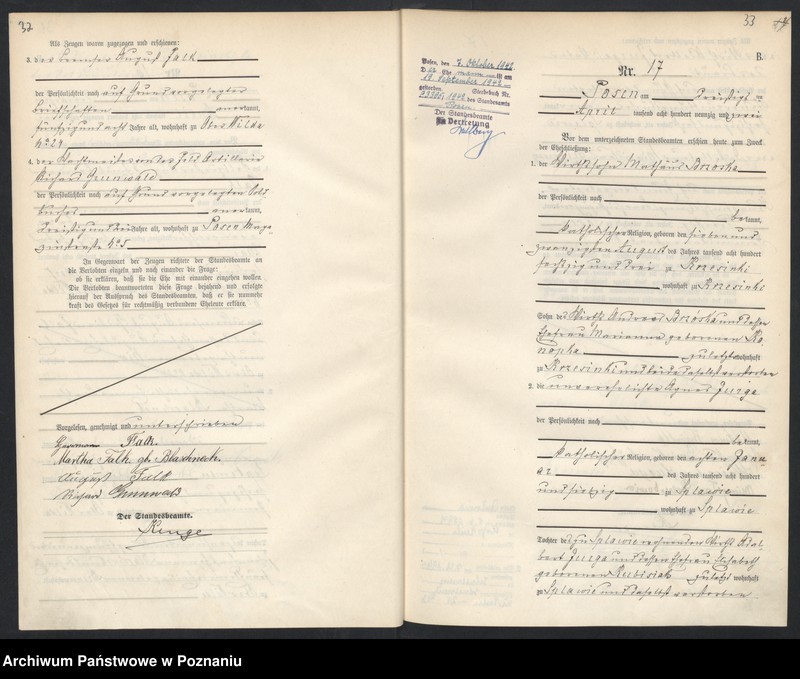 32
Als Zeugen waren zugezogen und erschienen:
3. der Bremser August Falk
der Persönlichkeit nach auf Grund vorgelegter
Briefschaften anerkannt,
fünfzig und acht Jahre alt, wohnhaft zu Ober Wilda
No 24
4. der Wachtmeister von der Feld Artillerie
Richard Grunwald
der Persönlichkeit nach auf Grund vorgelegten Sold
buches anerkannt,
dreißig und drei Jahre alt, wohnhaft zu Posen Maga
zinstraße No 5
In Gegenwart der Zeugen richtete der Standesbeamte an
die Verlobten einzeln und nach einander die Frage:
ob sie erklären, daß sie die Ehe mit einander eingehen wollen.
Die Verlobten beantworteten diese Frage bejahend und erfolgte
hierauf der Ausspruch des Standesbeamten, daß er sie nunmehr
kraft des Gesetzes für rechtmäßig verbundene Eheleute erkläre.
Vorgelesen, genehmigt und unterschrieben
Hermann Falk.
Martha Falk geb. Blaschneck.
August Falk
Richard Grunwald
Der Standesbeamte.
33
B.
Posen, den 7. Oktober 1942
D Ehe ist am
19. September 1942
gestorben. Sterbebuch Nr.
des Standesamts
Posen
Der Standesbeamte
In Vertretung
Nr. 17
Posen am dreißigsten
April tausend acht hundert neunzig und zwei
Vor dem unterzeichneten Standesbeamten erschienen heute zum Zweck
der Eheschließung:
1. der Wirthssohn Mathäus Brzóska
der Persönlichkeit nach
bekannt,
katholischer Religion, geboren den sieben und
zwanzigsten August des Jahres tausend acht hundert
sechszig und drei zu Krzesinki
wohnhaft zu Krzesinki
Sohn des Wirth Andreas Brzóska und dessen
Ehefrau Marianna geborenen Ko
nopka zuletzt wohnhaft
zu Krzesinki und beide daselbst verstorben
2. die unverehelichte Agnes Jurga
der Persönlichkeit nach
bekannt,
katholischer Religion, geboren den achten Janu
ar des Jahres tausend acht hundert
und siebzig zu Splawie
wohnhaft zu Splawie
Tochter des zu Splawie wohnenden Wirth Adal
bert Jurga und dessen Ehefrau Elisabeth
geborenen Kubisiak zuletzt wohnhaft
zu Splawie und daselbst verstorben
Archiwum Państwowe w Poznaniu